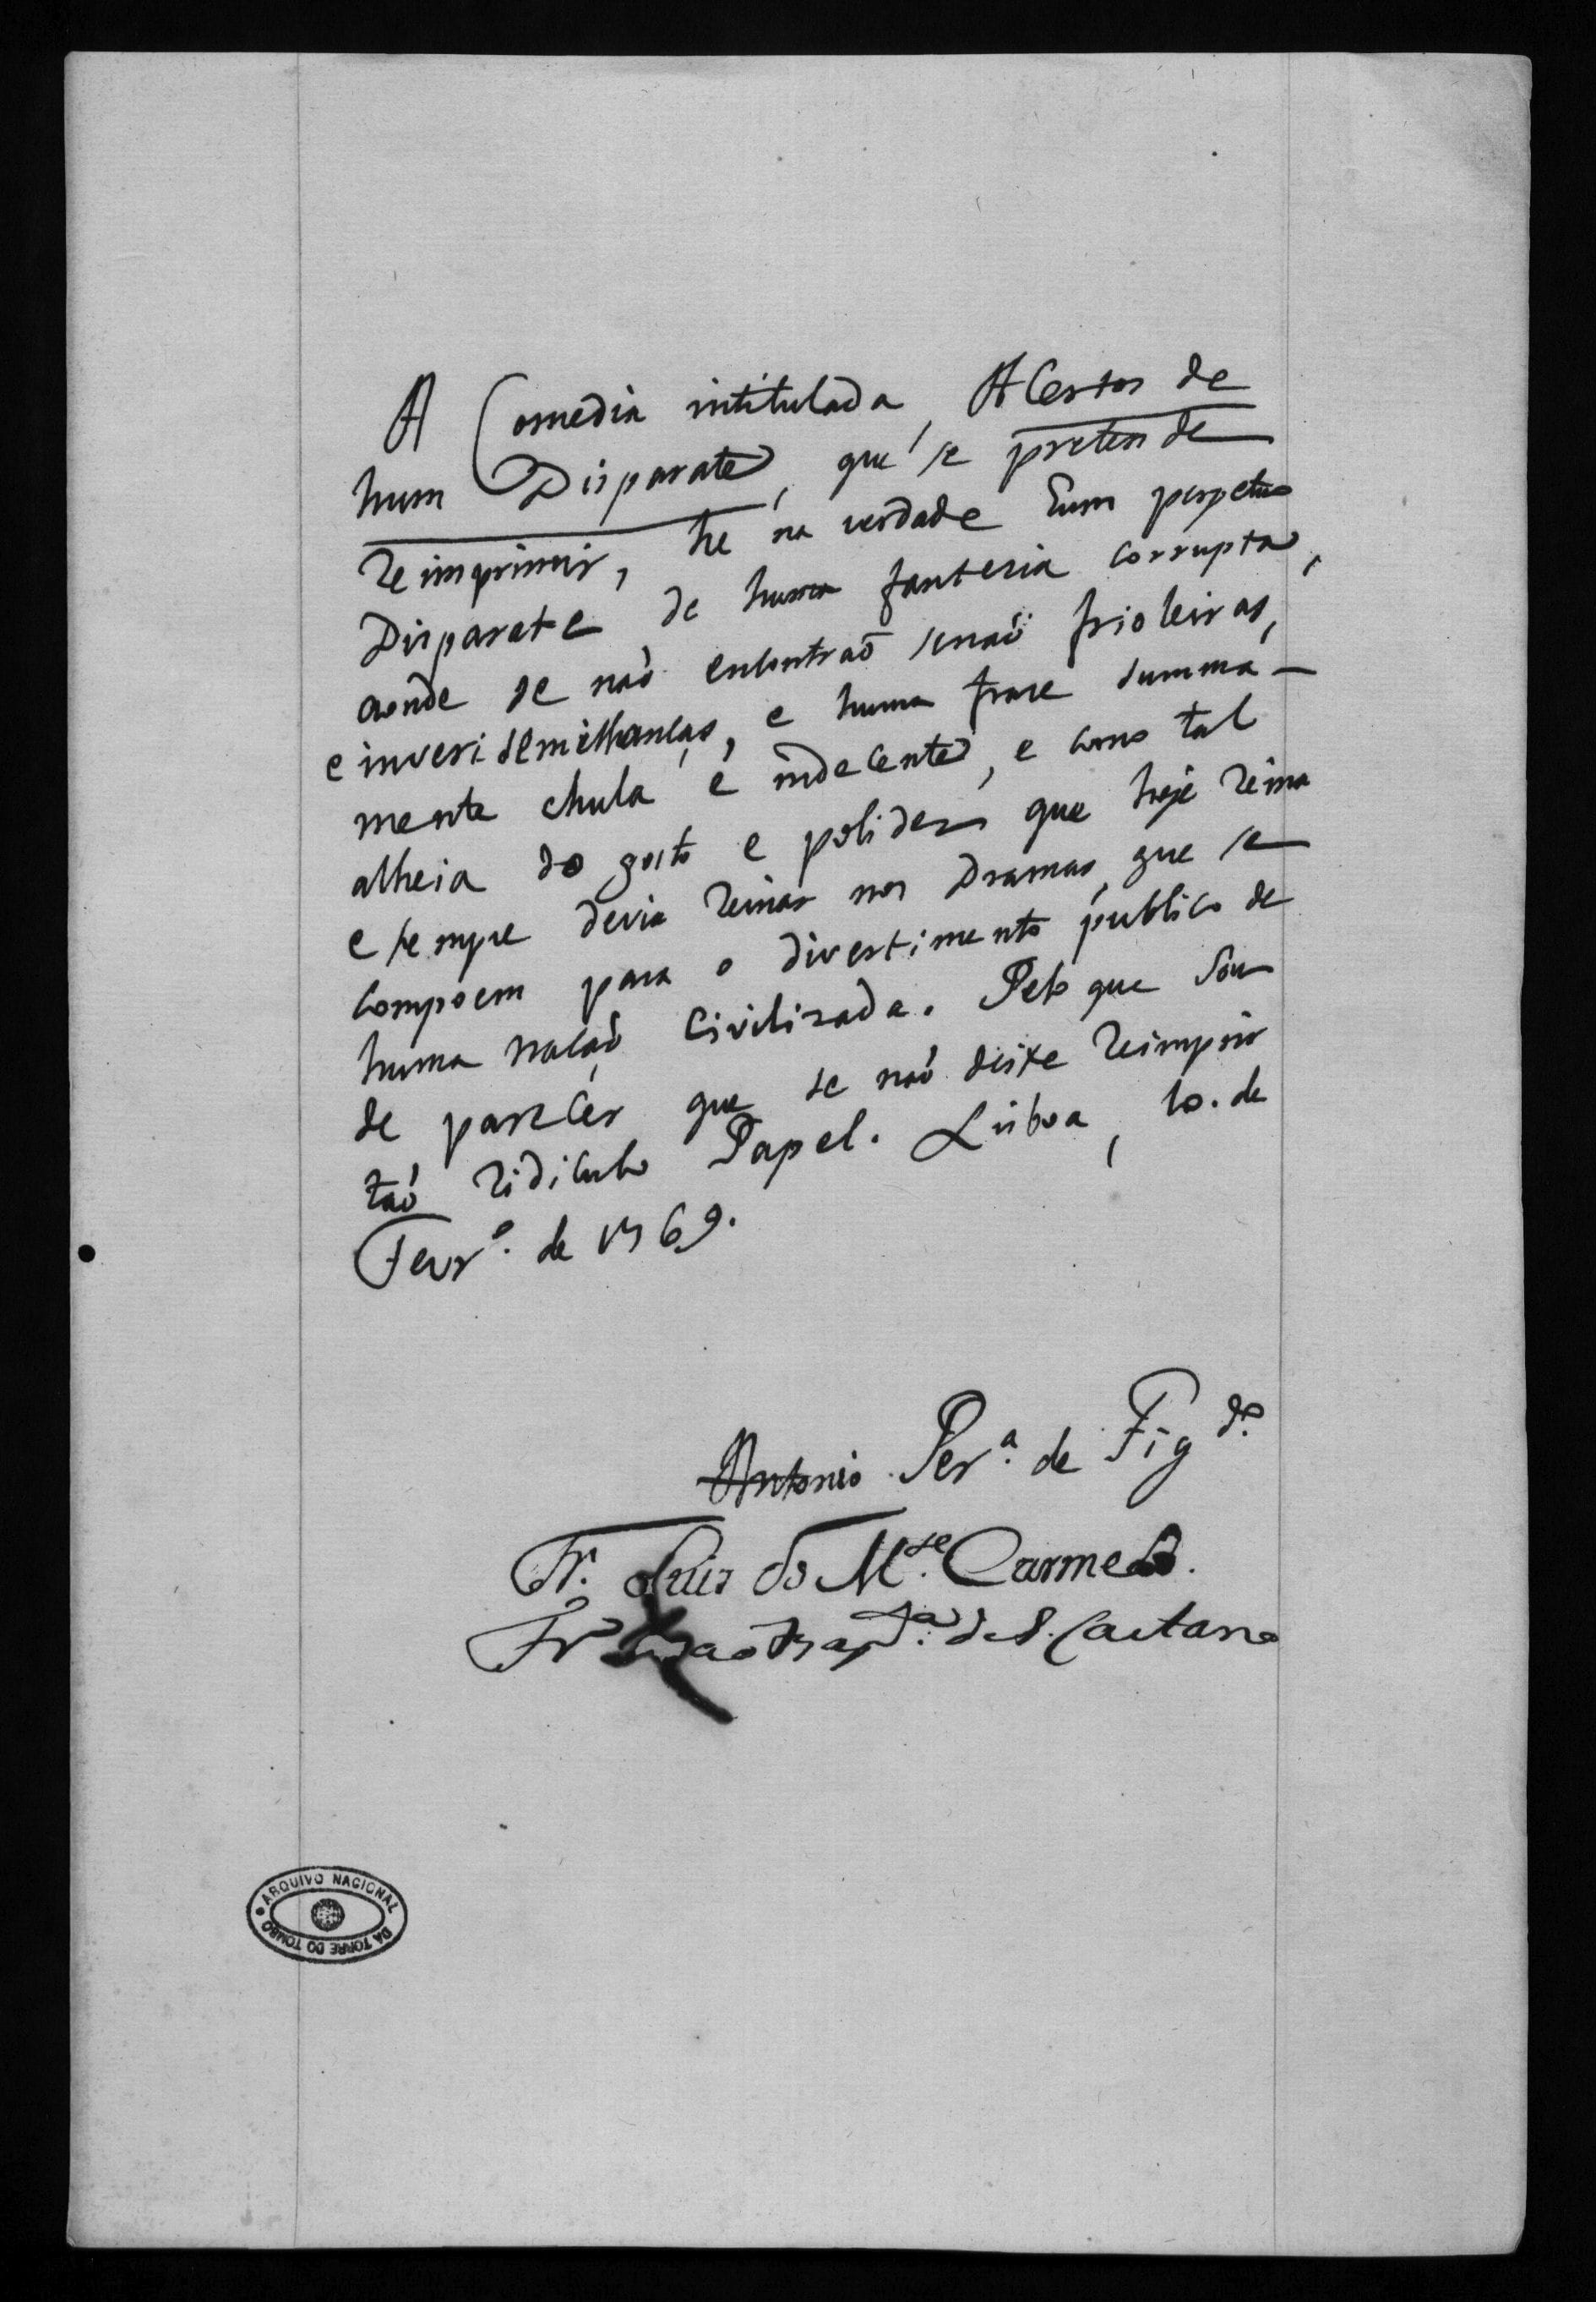 A Comedia intitulada, Acertos de
hum Disparate, que se pretende
reimprimir, he na verdade hum perpetuo
Disparate de huma fantesia corrupta,
aonde se naõ encontraõ senaõ frioleiras,
e inverisemilhanças, e huma frase summa-
mente chula e indecente, e como tal
alheia do gosto e polidez que hoje reina
e sempre devia reinar nos Dramas, que se
compoem para o divertimento publico de
huma naçaõ civilizada. Pelo que sou
de parecer que se naõ deixe reimprimir
taõ ridiculo Papel. Lisboa, 10. de
Fevr.º de 1769.
Antonio Per.ª de Fig.do
Fr. Luiz do M.te Carmelo.
Fr. Joaõ Bap.ta de S. Caetano
ARQUIVO NACIONAL
DA TORRE DO TOMBO